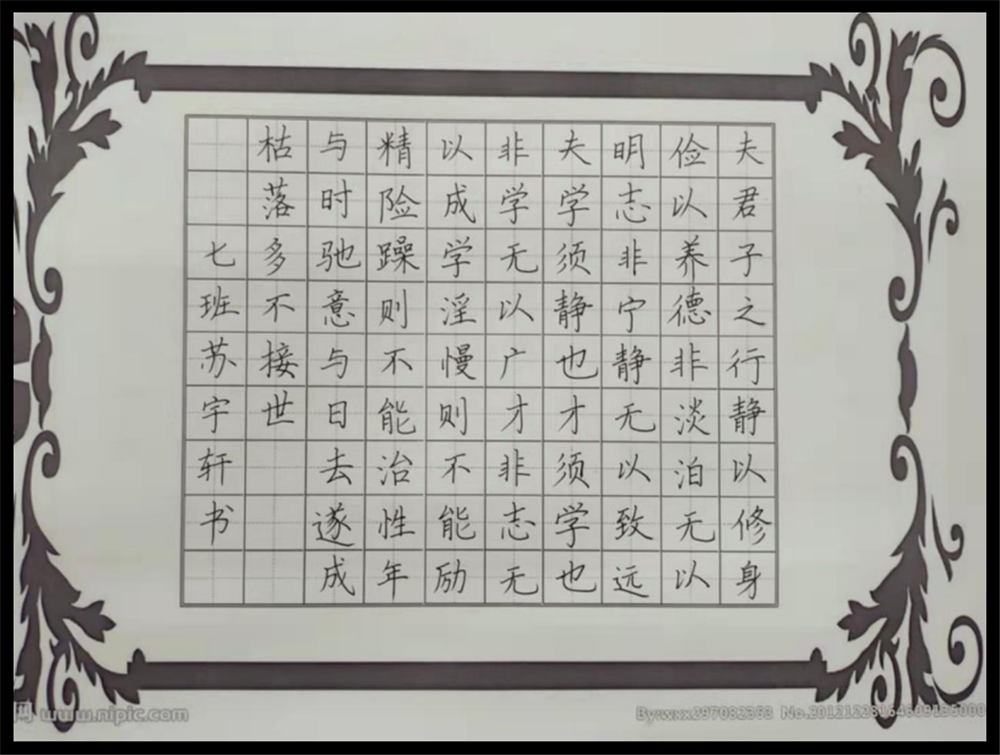 夫君子之行静以修身
俭以养德非淡泊无以
明志非宁静无以致远
夫学须静也才须学也
非学无以广才非志无
以成学淫慢则不能励
精险躁则不能治性年
与时驰意与日去遂成
枯落多不接世
七班苏宇轩书
网 www.nipic.com